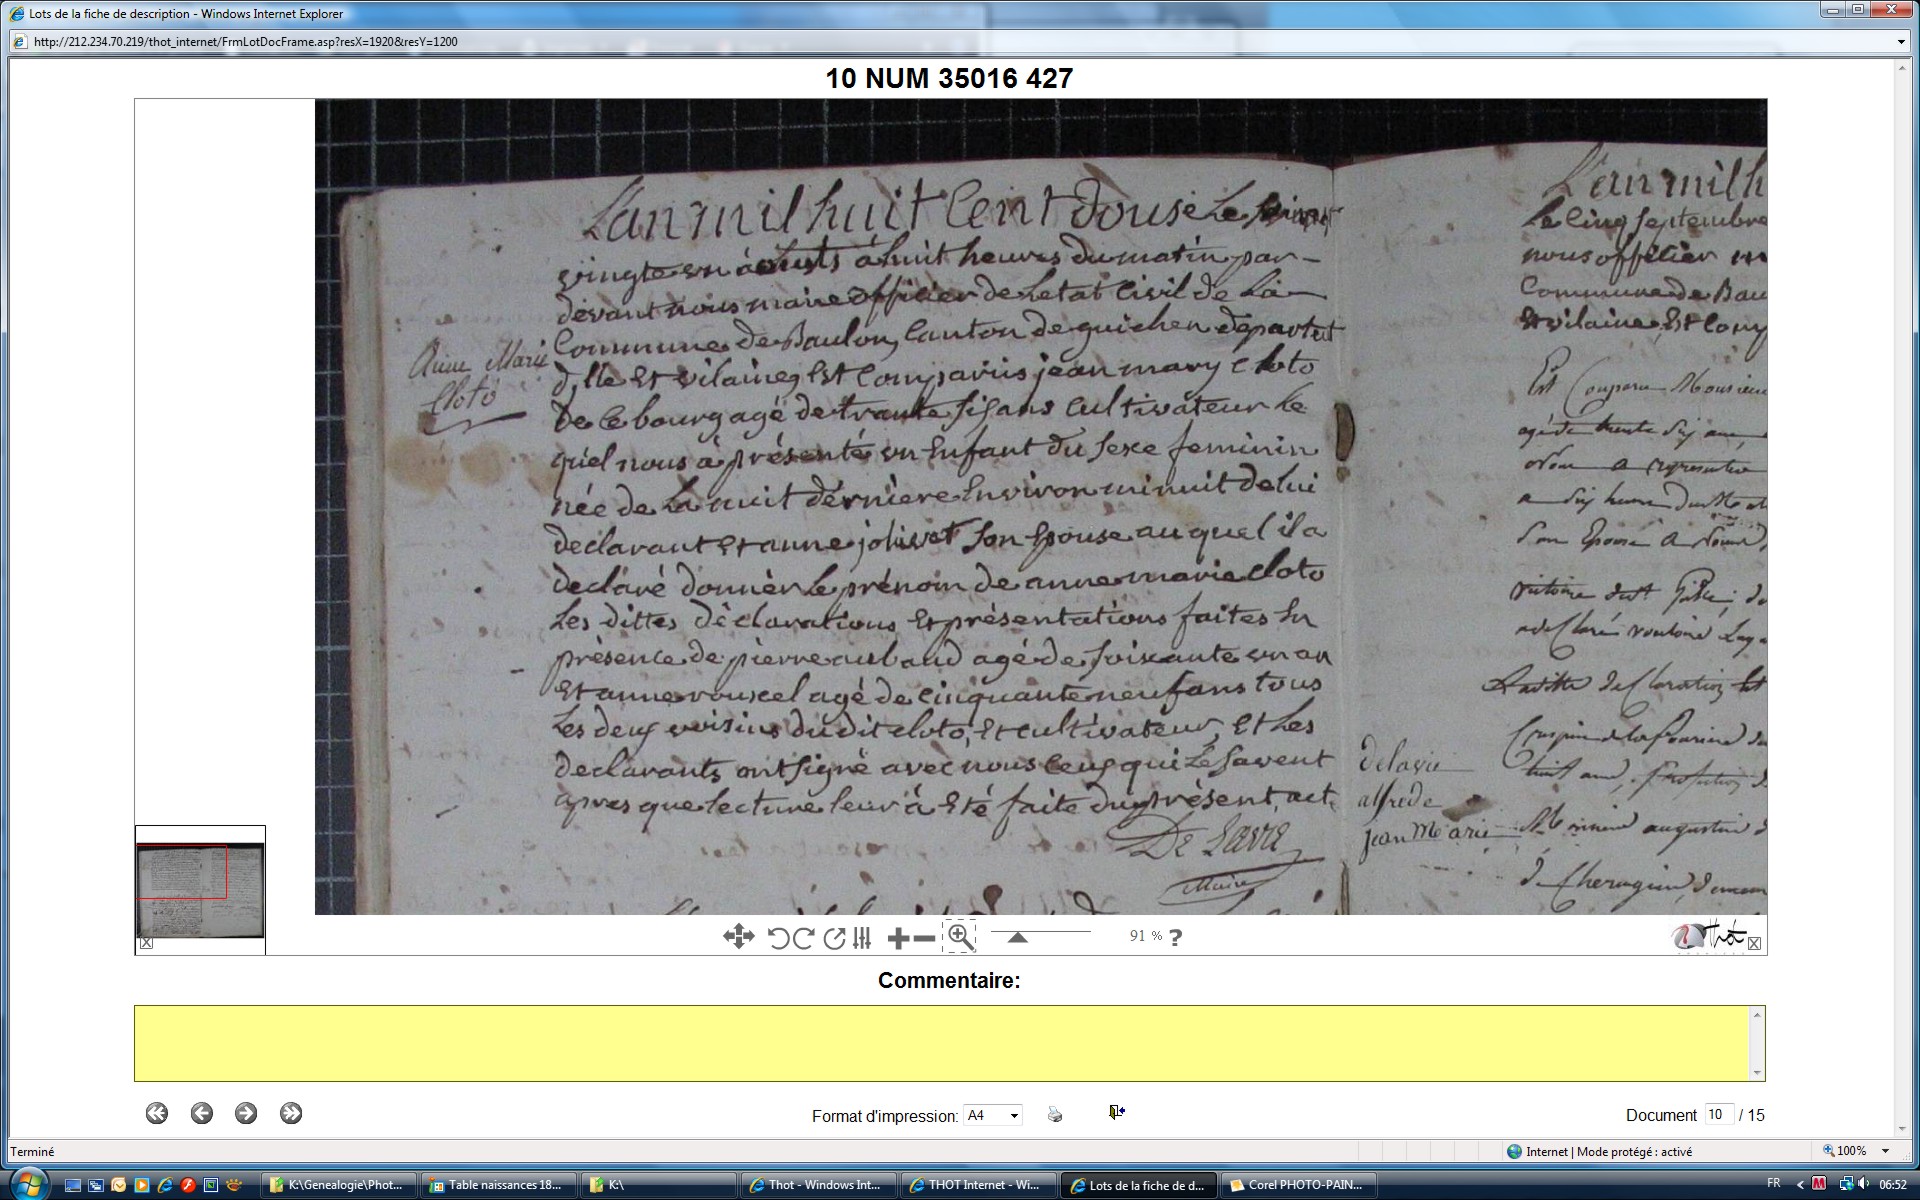 Lots de la fiche de description - Windows Internet Explorer
http://212.234.70.219/thot_internet/FrmLotDocFrame.asp?resX=1920&resY=1200
10 NUM 35016 427
L'an mil huit Cent douse Le
vingte un àousts à huit heures du matin par-
devant nous maire officier de Letat Civil de La
Commune de Baulon, Canton de guichen departet
d'ille Et vilaine, Est Comparus jean mary Cloto
de Ce bourg agé de trante six ans Cultivateur Le
quel nous à présenté un Enfant du sexe feminin
née de La nuit dérniere Environ minuit de lui
declarant Et anne jolivet Son Epouse au quel il a
declaré donnér Le prénom de anne marie cloto
Les dittes déclarations Et présentations faites En
présence de pierre aubaud agé de soixante un an
Et anne rouxel agé de cinquante neuf ans tous
Les deux voisins du dit cloto, Et cultivateur, Et Les
declarants ont signé avec nous Ceux qui Le savent
apres que lecture leur à Eté faite du présent act
De Lavie
Maire
Anne Marie
Cloto
L'an mil h
Le Cinq Septembre
nous officier
Commune de Bau
Et vilaine Est Comp
Est Comparu Monsieur
agé de trente six ans
Son Epouse a
delavie
alfrede
jean Marie
augustin
91 % ?
Thot
Commentaire:
Format d'impression: A4
Document 10 / 15
Terminé
Internet | Mode protégé : activé
100%
K:\Genealogie\Phot...
Table naissances 18...
K:\
Thot - Windows Int...
THOT Internet - Wi...
Lots de la fiche de d...
Corel PHOTO-PAIN...
FR
06:52